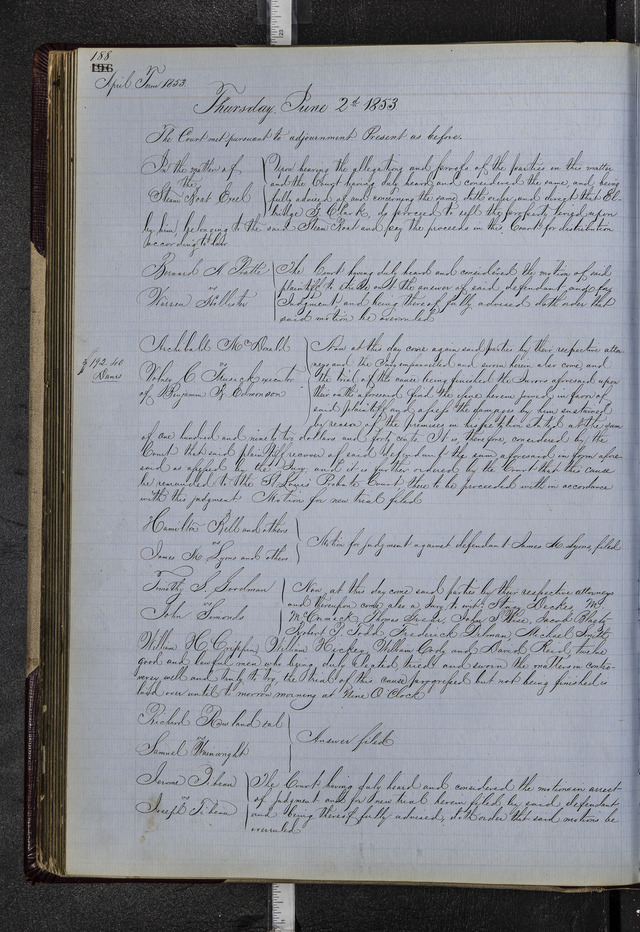 188
April Term 1853.
Thursday June 2d 1853
The Court met pursuant to adjournment Present as before.
In the matter of
the
Steam Boat Excel
Upon hearing the allegations and proofs of the parties in this matter
and the Court having duly heard and considered the same, and being
fully advised of and concerning the same doth order and direct that El-
bridge G. Clark, do proceed to sell the property levied upon
by him belonging to the said Steam Boat and pay the proceeds in this Court for distribution
according to law.
vs
Warren Hollister
The Court having duly heard and considered the motion of said
plaintiff to strike out the answer of said defendant, and for
Judgment, and being thereof fully advised doth order that
said motion be overruled
$192.40
Dams
Archibald McDonald
vs
executor
of Benjamin F. Edmonson
Now at this day come again said parties by their respective attor-
neys and the Jury empannelled and sworn herein also come, and
the trial of the cause being finished the Jurors aforesaid upon
their oath aforesaid find the issue herein joined in favor of
said plaintiff and assess the damages by him sustained
by reason of the premises in his petition stated at the sum
of one hundred and ninety two dollars and forty cents. It is, therefore, considered by the
Court that said plaintiff recover of said defendant the sum aforesaid in form afore-
said so assessed by the Jury, and it is further ordered by the Court that this cause
be remanded to the St Louis Probate Court there to be proceeded with in accordance
with this judgment Motion for new trial filed
Hamilton Bell and others
vs
James H. Lyons and others
Motion for judgment against defendant James H. Lyons, filed
Timothy S. Goodman
vs
John Simonds
Now at this day come said parties by their respective attorneys
and thereupon comes also a Jury to wit: Decker, Wm
McCormick, Thomas John S. Wise, Jacob
Robert P. Todd, Frederick Michael Smith,
William H. Griffin, William Hickey, William Cody and David Reid, twelve
good and lawful men who being duly elected tried and sworn the matters in contro-
versy well and truly to try, the trial of this cause progressed but not being finished is
laid over until to morrow morning at Nine O'Clock
Richard Rowland et al
vs
Samuel Wainwright
Answer filed
Jerome
vs
Joseph
The Court having duly heard and considered the motions in arrest
of judgment and for new trial herein filed by said defendant,
and being thereof fully advised, doth order that said motions be
overruled